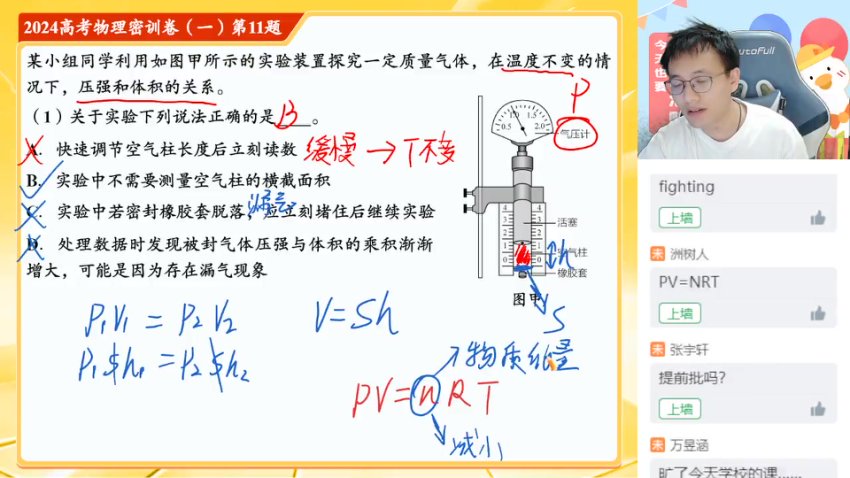 2024高考物理密训卷（一）第11题
某小组同学利用如图甲所示的实验装置探究一定质量气体，在温度不变的情
况下，压强和体积的关系。
P
（1）关于实验下列说法正确的是 B 。
A. 快速调节空气柱长度后立刻读数 缓慢 → T不变
B. 实验中不需要测量空气柱的横截面积
漏气
C. 实验中若密封橡胶套脱落，应立刻堵住后继续实验
D. 处理数据时发现被封气体压强与体积的乘积渐渐
增大，可能是因为存在漏气现象
0.5 1.0 1.5 2.0
气压计
4 4
3 3
2 2
1 1
0 0
活塞
空气柱
橡胶套
h
图甲
S
P₁V₁ = P₂V₂
V=Sh
P₁Sh₁ = P₂Sh₂
物质的量
PV=nRT
减小
AutoFull
fighting
上墙
未 洲树人
PV=NRT
上墙
未 张宇轩
提前批吗?
上墙
未 万昱涵
旷了今天学校的课......